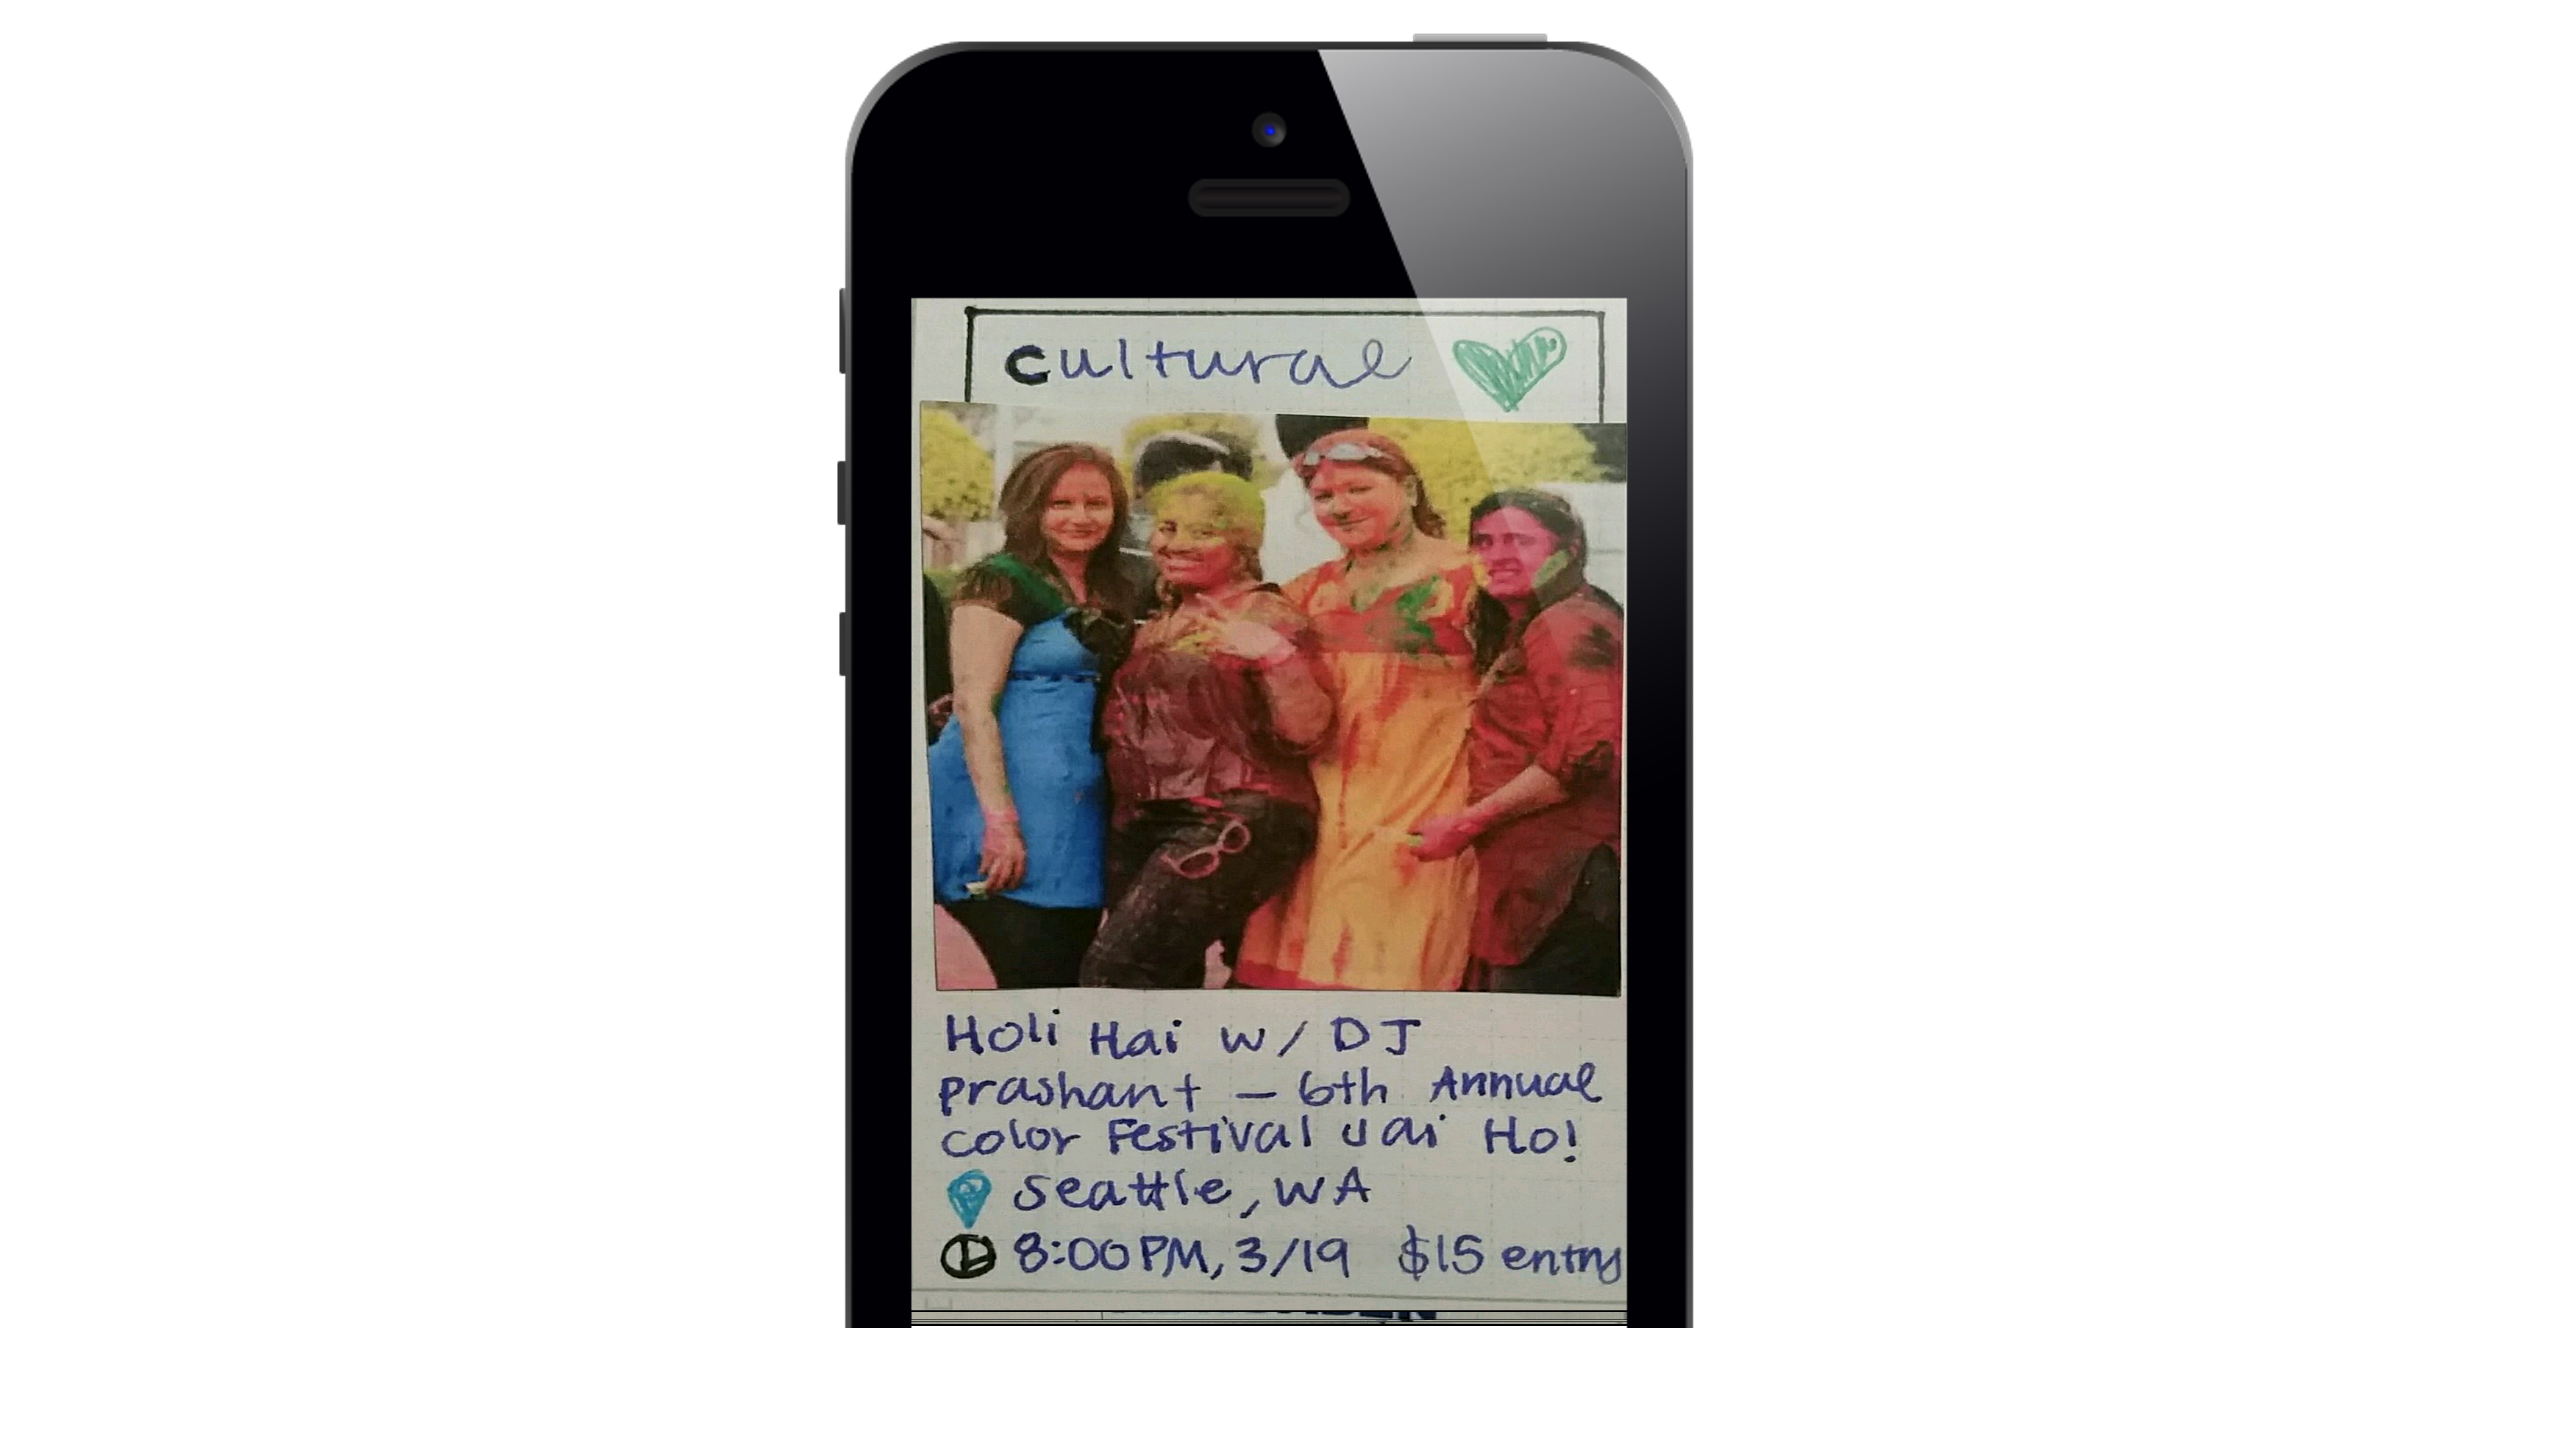 Cultural
Holi Hai w/ DJ
Prashant – 6th Annual
Color Festival Jai Ho!
Seattle, WA
8:00 PM, 3/19 $15 entry